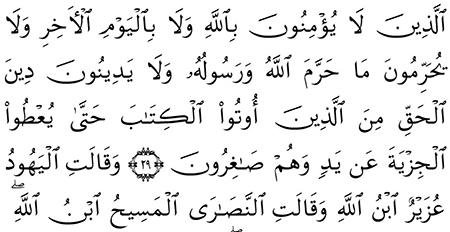 ٱلَّذِينَ لَا يُؤْمِنُونَ بِٱللَّهِ وَلَا بِٱلْيَوْمِ ٱلْأَخِرِ وَلَا
يُحَرِّمُونَ مَا حَرَّمَ ٱللَّهُ وَرَسُولُهُۥ وَلَا يَدِينُونَ دِينَ
ٱلْحَقِّ مِنَ ٱلَّذِينَ أُوتُوا۟ ٱلْكِتَٰبَ حَتَّىٰ يُعْطُوا۟
ٱلْجِزْيَةَ عَن يَدٍ وَهُمْ صَٰغِرُونَ ﴿٢٩﴾ وَقَالَتِ ٱلْيَهُودُ
عُزَيْرٌ ٱبْنُ ٱللَّهِ وَقَالَتِ ٱلنَّصَٰرَى ٱلْمَسِيحُ ٱبْنُ ٱللَّهِ ۖ